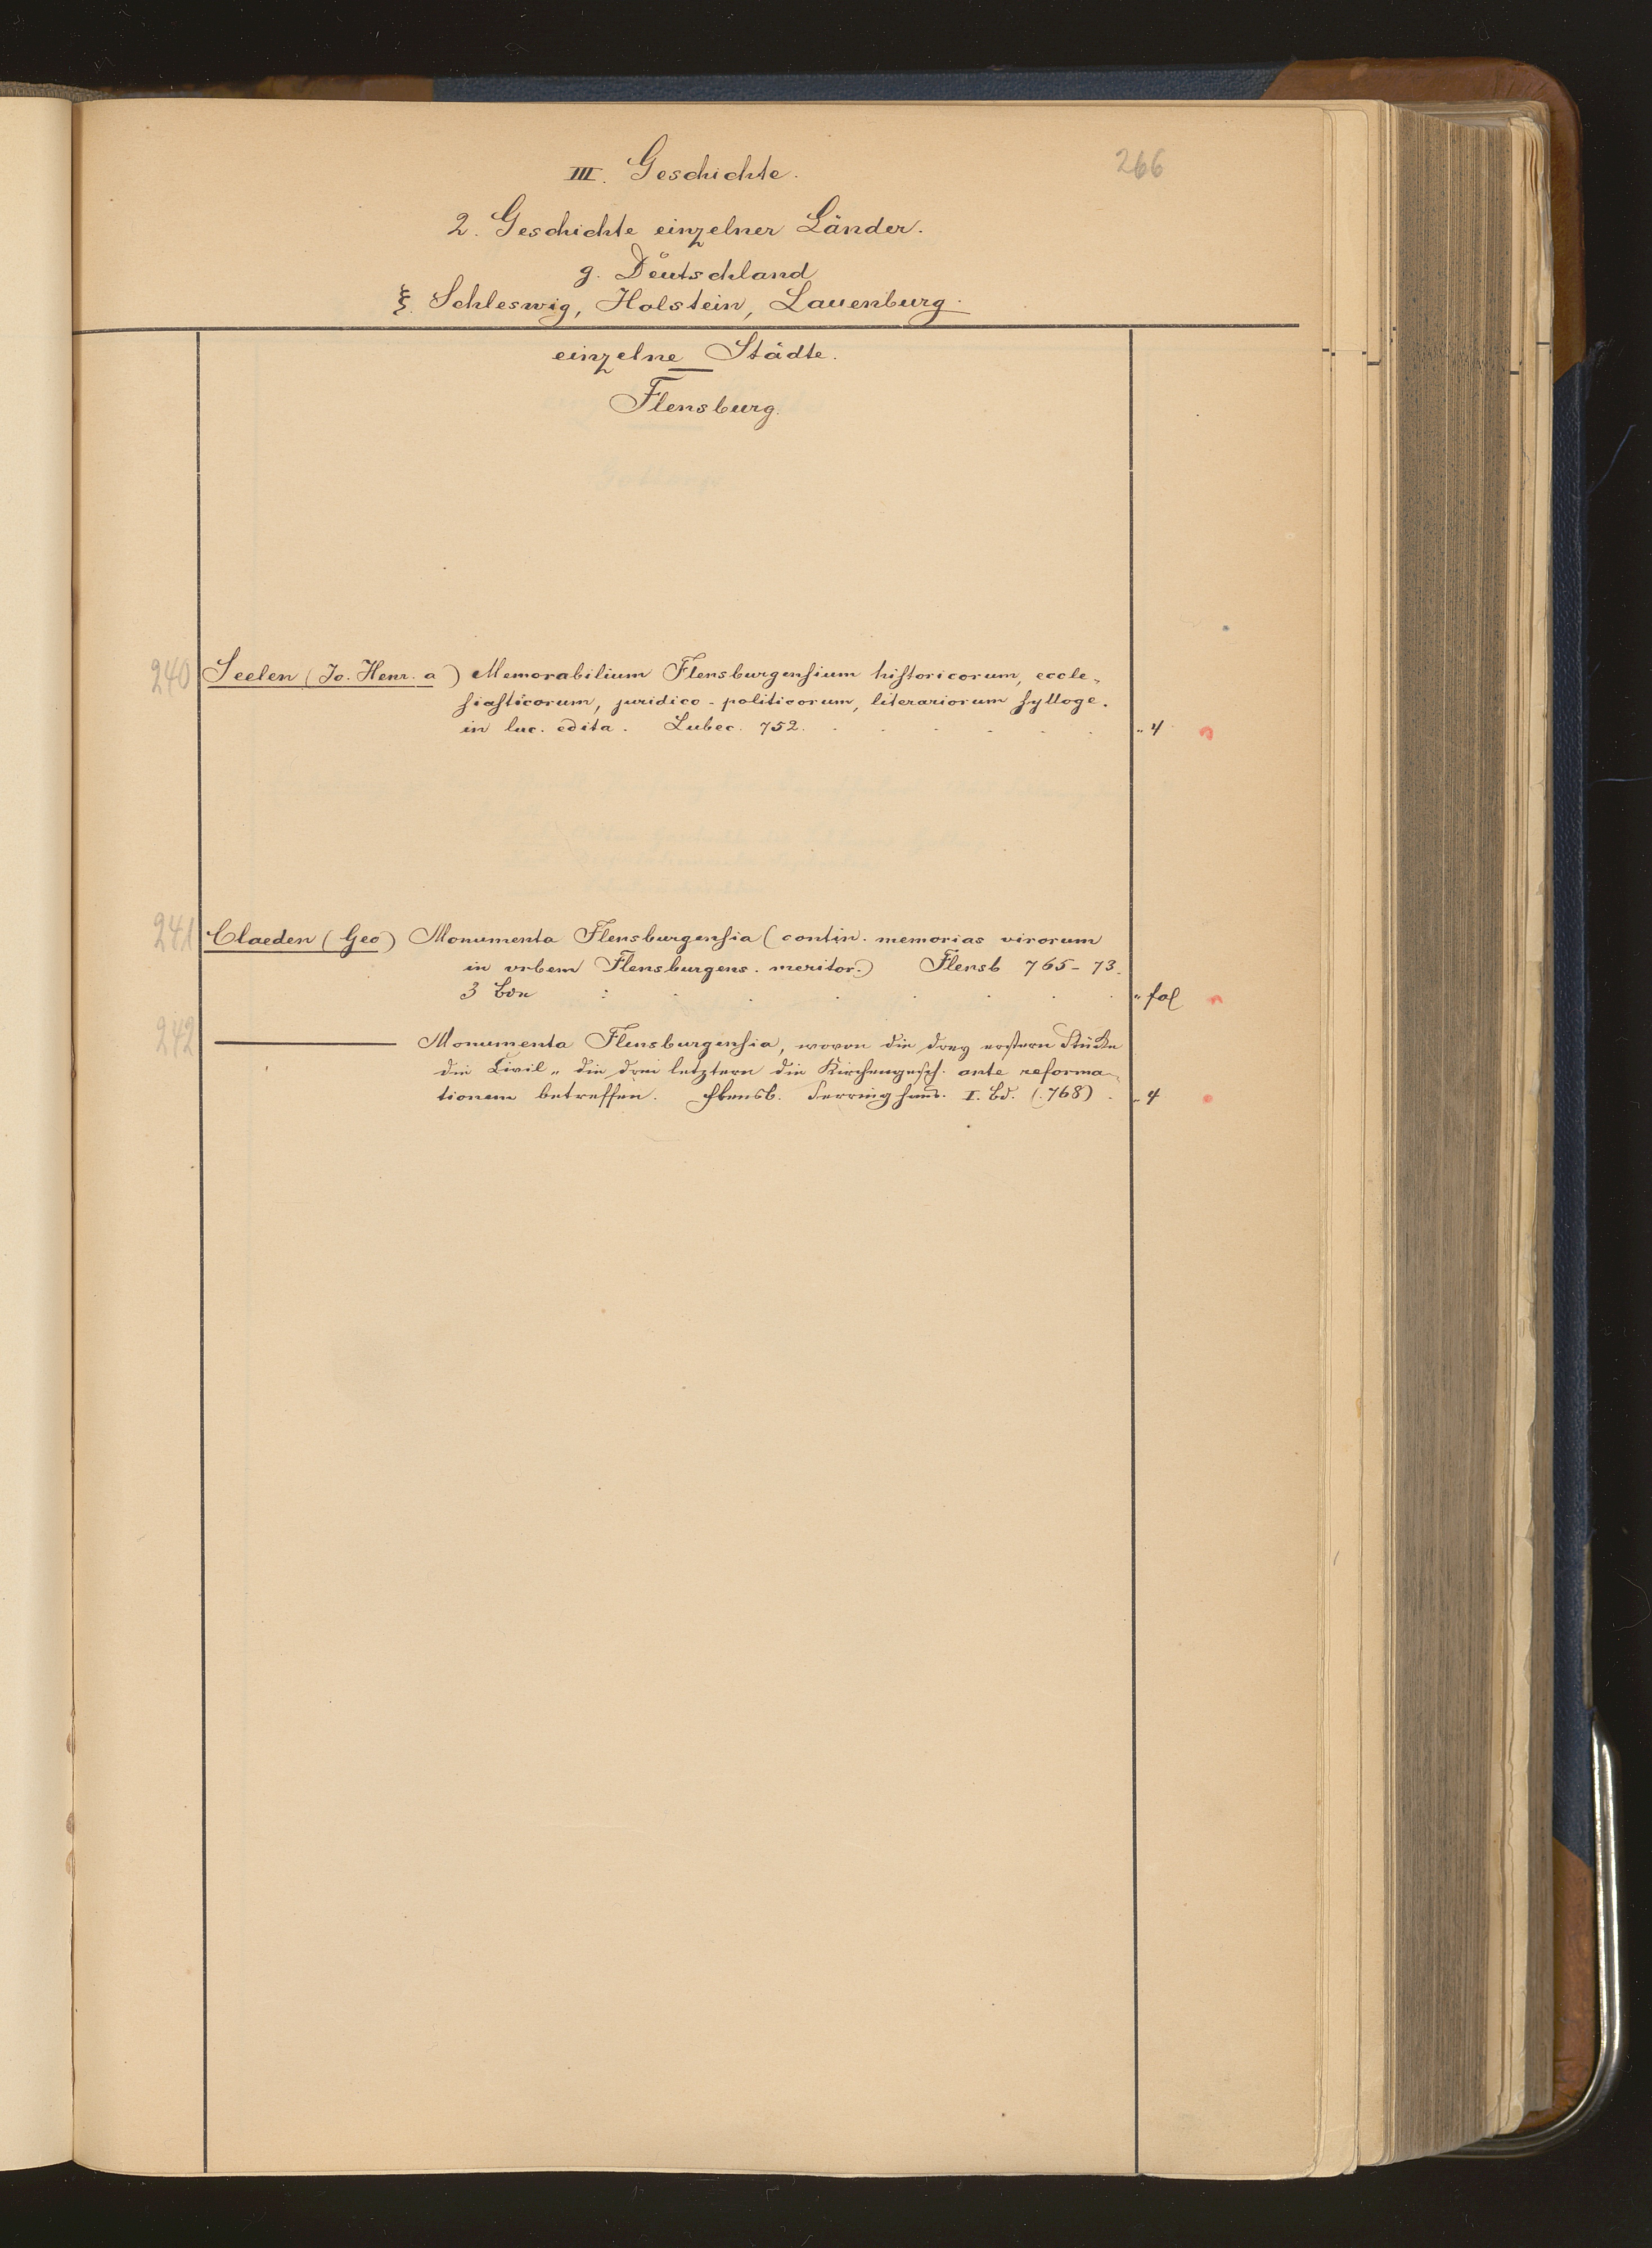 III. Geschichte.
266
2. Geschichte einzelner Länder.
g. Deutschland
ξ. Schleswig, Holstein, Lauenburg.
einzelne Städte.
Flensburg.
240 Seelen (Jo. Henr. a) Memorabilium Flensburgensium historicorum, eccle-
siasticorum, juridico-politicorum, literariorum sylloge.
in luc. edita. Lubec. 752. „ 4
241 Claeden (Geo) Monumenta Flensburgensia (contin. memorias virorum
in urbem Flensburgens. meritor.) Flensb 765-73.
3 Bde „ fol
242 — Monumenta Flensburgensia, wovon die drey erstern Stücke
die Civil „ die drei letztern die Kirchengesch. ante reforma-
tionem betreffen. Flensb. Serringhaus. I. Bd. (768) „ 4